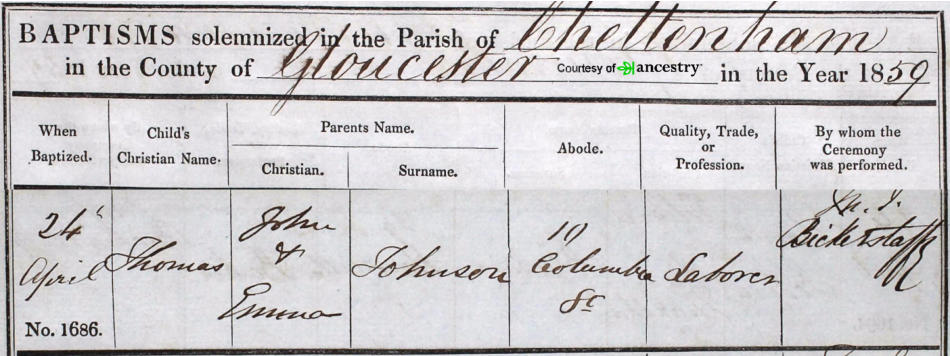 BAPTISMS solemnized in the Parish of Cheltenham
in the County of Gloucester Courtesy of ancestry in the Year 1859
When Baptized.
Child's Christian Name.
Parents Name.
Christian.
Surname.
Abode.
Quality, Trade, or Profession.
By whom the Ceremony was performed.
24
April
No. 1686.
Thomas
John
&
Emma
Johnson
10
Columbia
St
Laborer
Bickerstaff